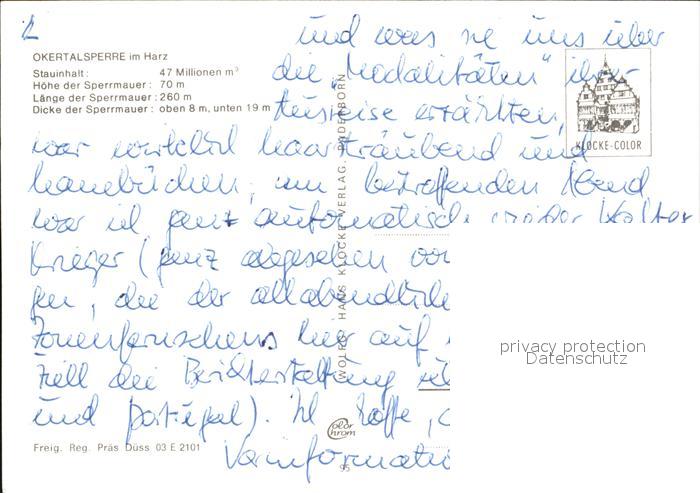 2
und was sie uns über
OKERTALSPERRE im Harz
Stauinhalt: 47 Millionen m³
Höhe der Sperrmauer: 70 m
Länge der Sperrmauer: 260 m
Dicke der Sperrmauer: oben 8 m, unten 19 m
die „Modalitäten" ihrer
erzählten,
war wirklich haarsträubend und
hanebüchen; am betreffenden Abend
war ich ganz automatisch
Krieger (ganz abgesehen von
gen, die der allabendliche
Zonenfernsehens hier auf
die Berichterstattung
und Portugal). Ich hoffe,
WOLFG. HANS KLOCKE VERLAG, PADERBORN
KLOCKE-COLOR
privacy protection
Datenschutz
color chrom
95
Freig. Reg. Präs Düss 03 E 2101